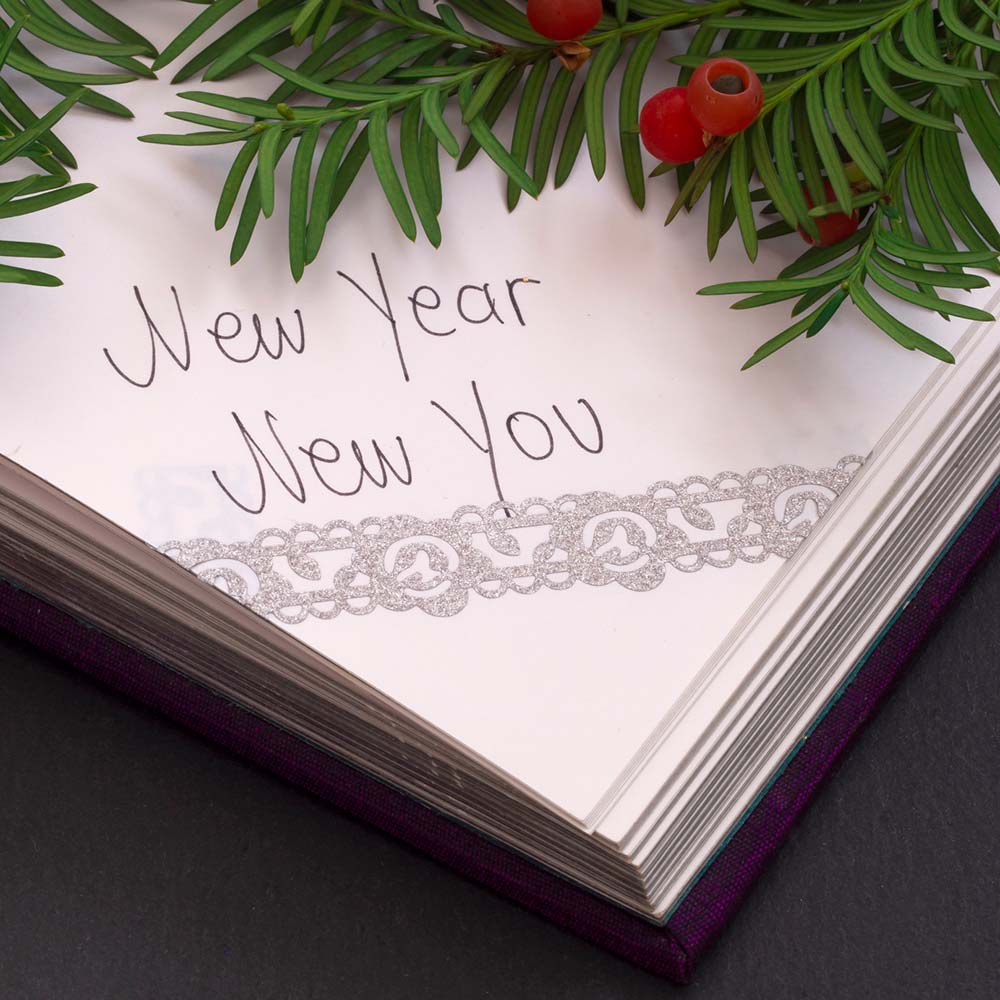 New Year
New You